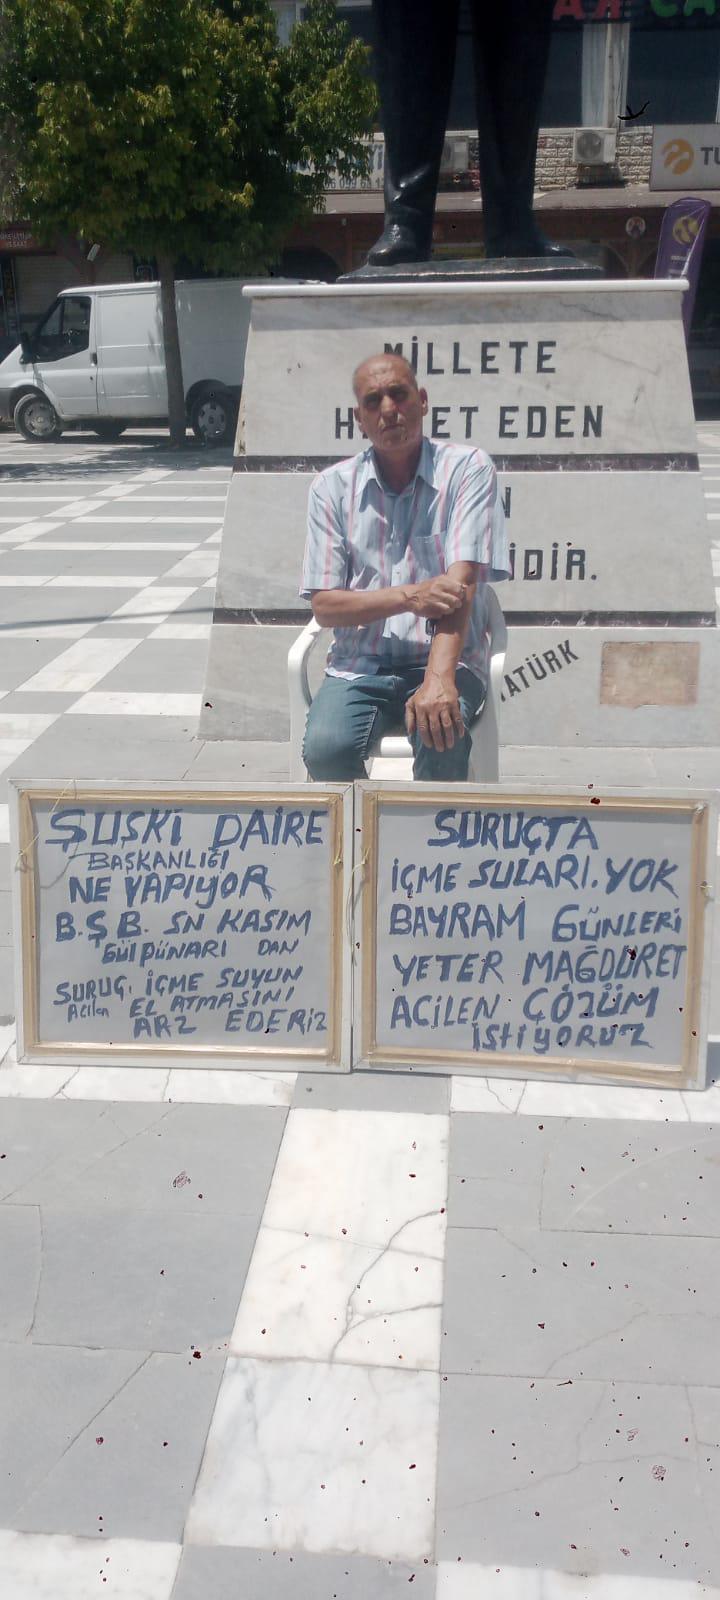 MİLLETE
EDEN
İDİR.
ATÜRK
TU
ŞUŞKİ DAİRE
BAŞKANLIĞI
NE YAPIYOR
B.Ş.B. SN KASIM
GÜLPÜNARI DAN
SURUÇ. İÇME SUYUN
Acilen EL ATMASINI
ARZ EDERİZ
SURUÇTA
İÇME SULARI. YOK
BAYRAM GÜNLERİ
YETER MAĞDURET
ACİLEN ÇÖZÜM
İSTİYORUZ